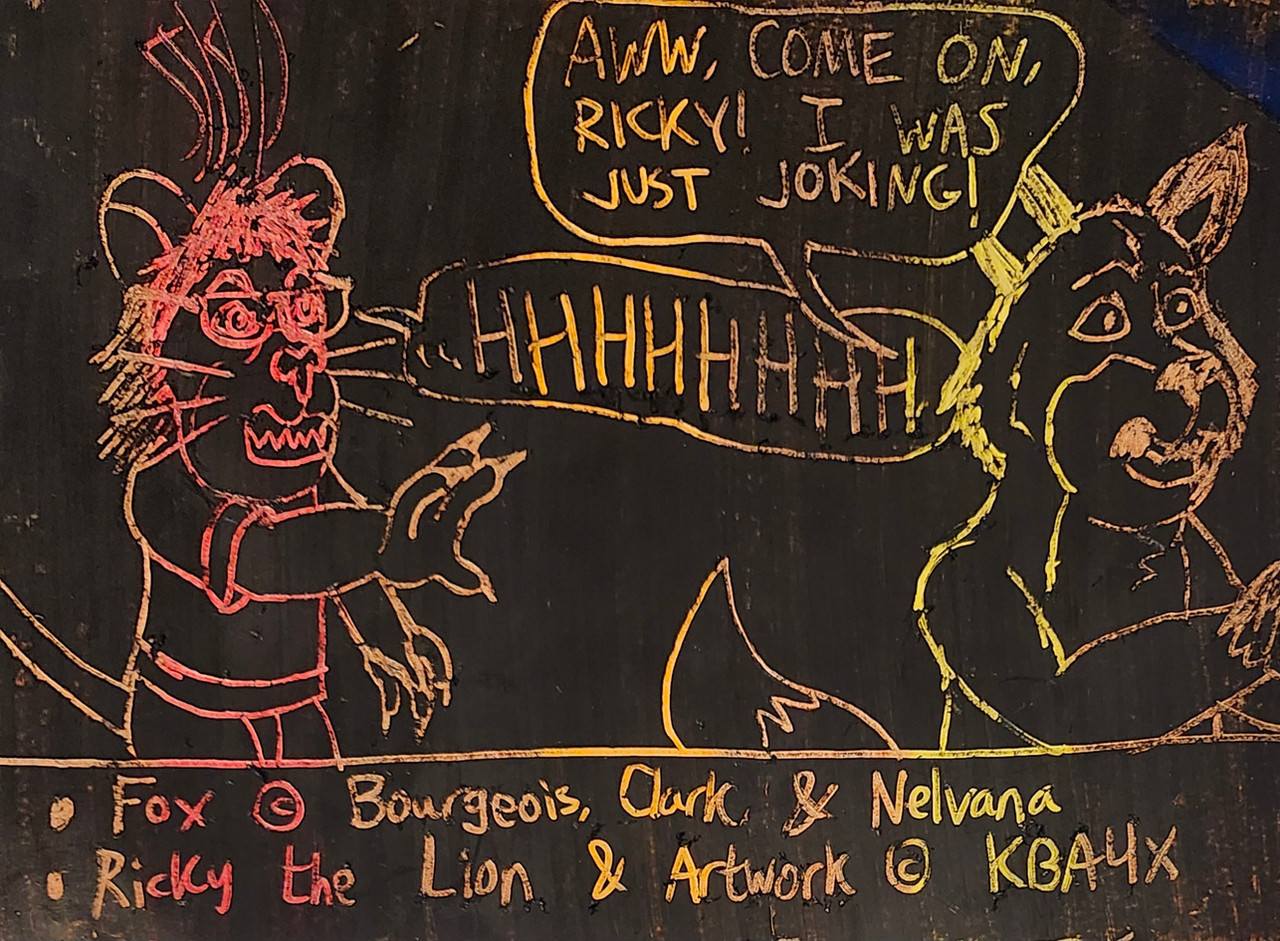 AWW, COME ON,
RICKY! I WAS
JUST JOKING!
HHHHHHHHH
• Fox © Bourgeois, Clark & Nelvana
• Ricky the Lion & Artwork © KBA4X